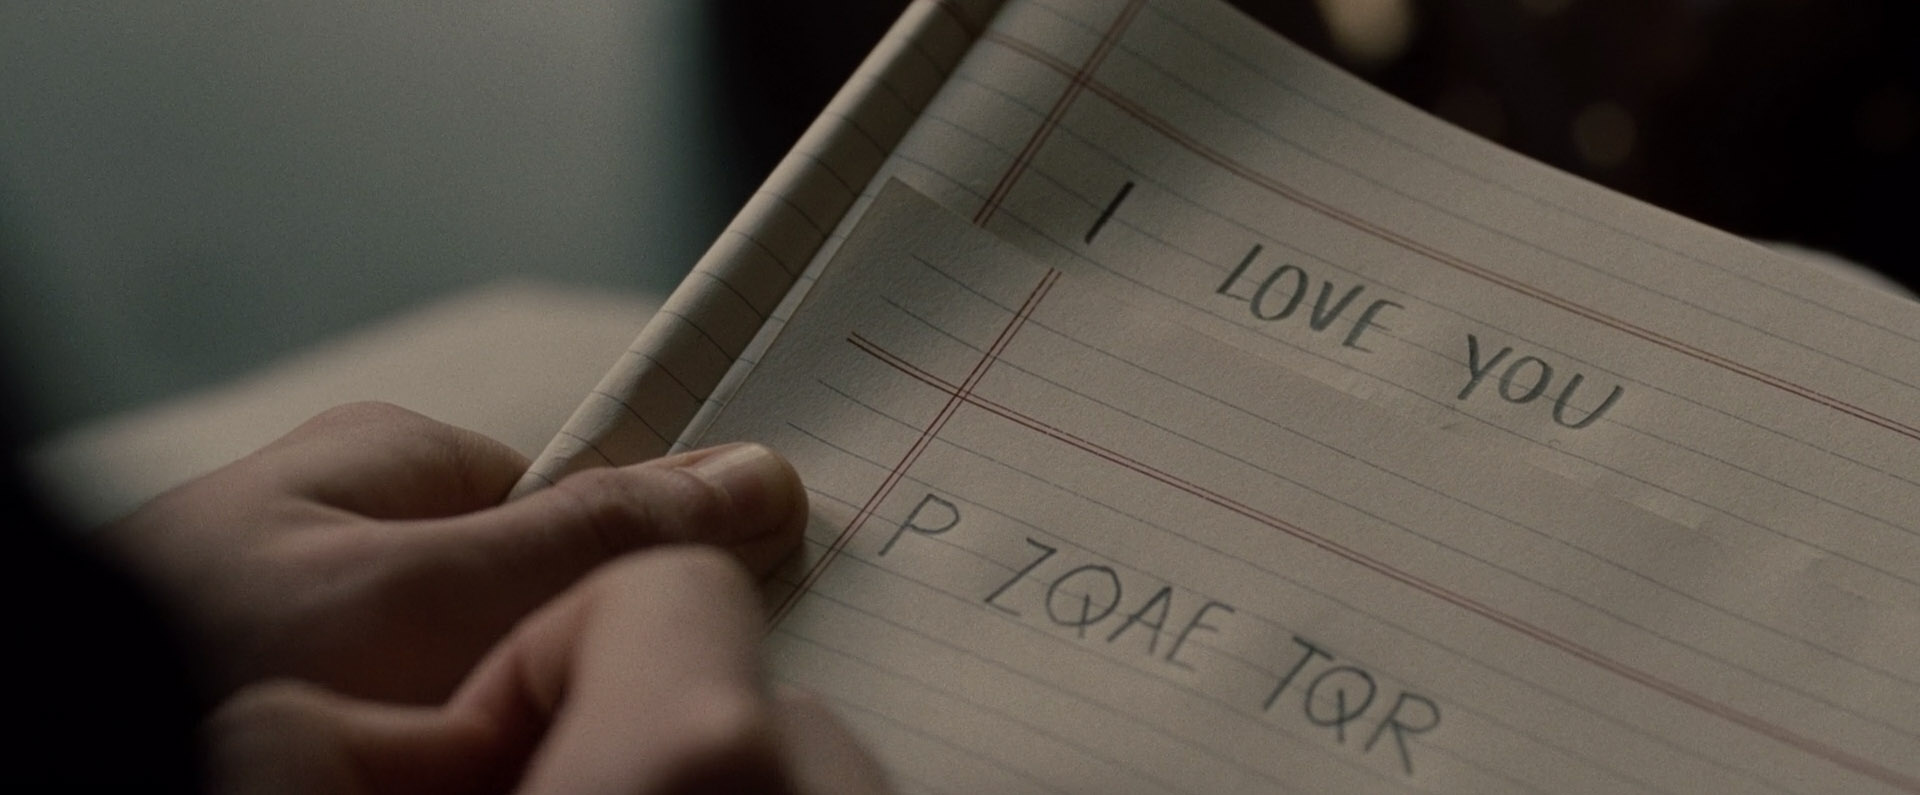 I LOVE YOU
P ZQAE TQR